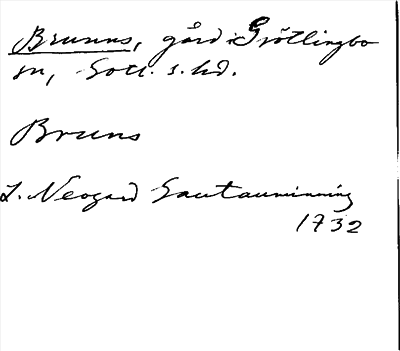 Brunns, gård i Grötlingbo
sn, Gotl. s. hd.
Bruns
L. Neogard Gautauminning
1732